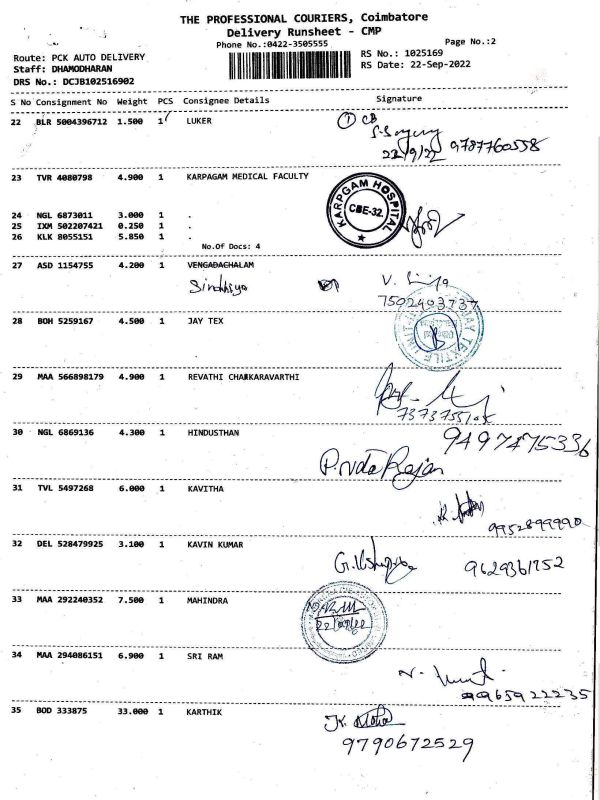 THE PROFESSIONAL COURIERS, Coimbatore
Delivery Runsheet - CMP
Phone No.:0422-3505555
Page No.:2
Route: PCK AUTO DELIVERY
RS No.: 1025169
Staff: DHAMODHARAN
RS Date: 22-Sep-2022
DRS No.: DCJB102516902
S No Consignment No Weight PCS Consignee Details Signature
22 BLR 5004396712 1.500 1 LUKER
22/9/22 9787760558
23 TVR 4080798 4.900 1 KARPAGAM MEDICAL FACULTY
KARPGAM HOSPITAL
CBE-32.
24 NGL 6873011 3.000 1 .
25 IXM 502207421 0.250 1 .
26 KLK 8055151 5.850 1 .
No.Of Docs: 4
27 ASD 1154755 4.200 1 VENGADACHALAM
Sindhiya
7502403737
28 BOH 5259167 4.500 1 JAY TEX
29 MAA 566898179 4.900 1 REVATHI CHARKARAVARTHI
30 NGL 6869136 4.300 1 HINDUSTHAN
9497475336
31 TVL 5497268 6.000 1 KAVITHA
9952899990
32 DEL 528479925 3.100 1 KAVIN KUMAR
9629361752
33 MAA 292240352 7.500 1 MAHINDRA
22/09/22
34 MAA 294086151 6.900 1 SRI RAM
9965922235
35 BOD 333875 33.000 1 KARTHIK
9790672529